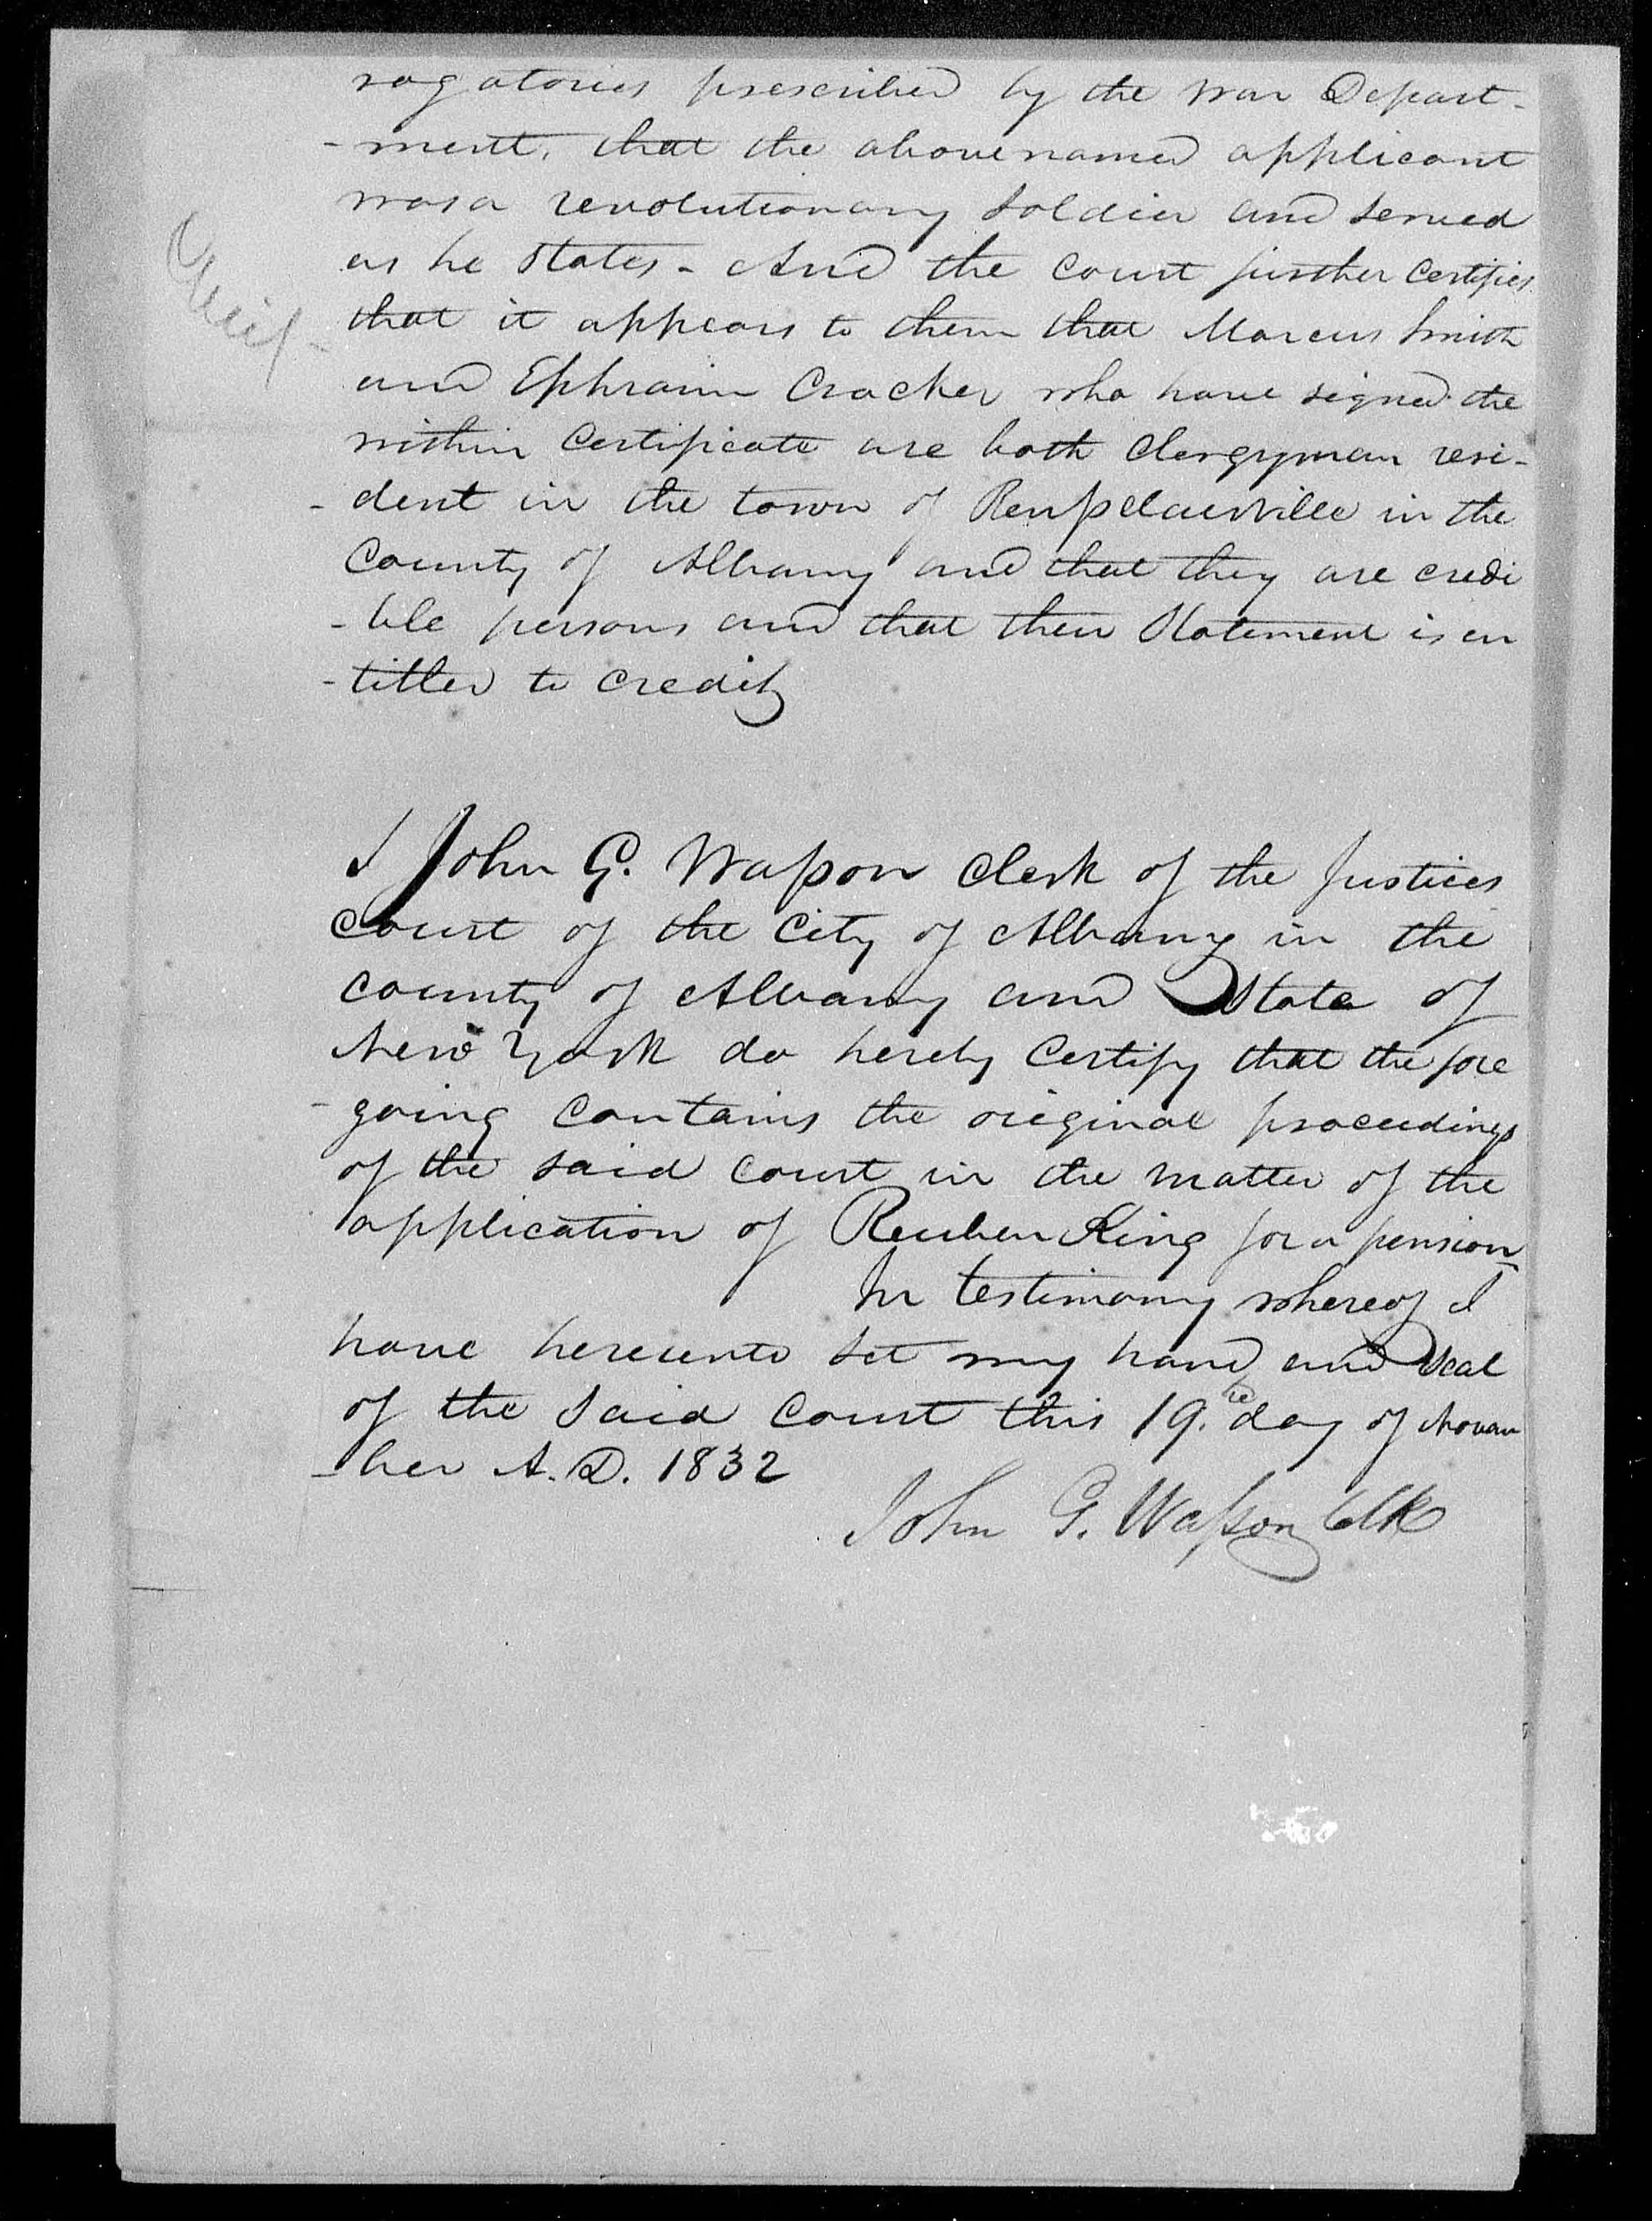 rogatories prescribed by the War Depart-
-ment, that the above named applicant
was a revolutionary soldier and served
as he states - And the court further certifies
that it appears to them that Marcus Smith
and Ephraim Crocker who have signed the
within Certificate are both Clergyman resi-
-dent in the town of Rensselaerville in the
County of Albany and that they are credi
-ble persons and that their Statement is en
-titled to credit
I John G. Wasson Clerk of the Justices
Court of the City of Albany in the
County of Albany and State of
New York do hereby Certify that the fore
-going Contains the original proceedings
of the said Court in the matter of the
application of Reuben King for a pension
In testimony whereof I
have hereunto set my hand and Seal
of the said Court this 19.th day of Novem
-ber A.D. 1832
John G. Wasson Clk